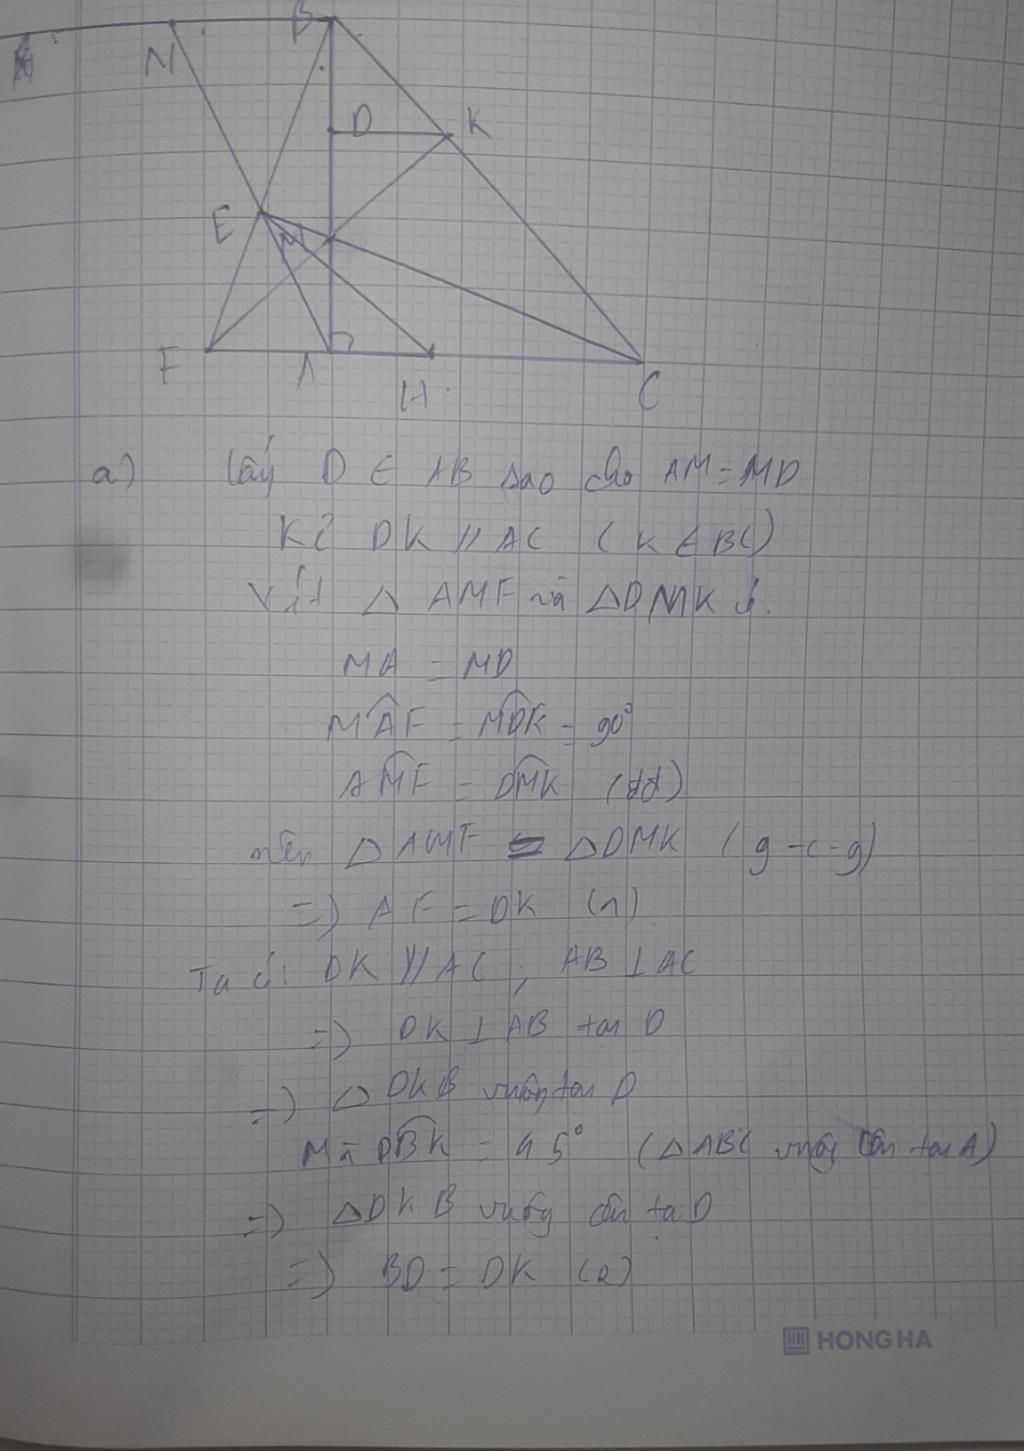 N B
D K
E M
F A H C
a) lấy D ∈ AB sao cho AM = MD
Kẻ DK // AC ( K ∈ BC)
Xét △ AMF và △DMK có:
MA = MD
MÂF = MD̂K = 90°
AM̂F = DM̂K (đđ)
nên △ AMF = △DMK ( g - c - g)
=> AF = DK (1)
Ta có: DK // AC ; AB ⊥ AC
=> DK ⊥ AB tại D
=> △ DKB vuông tại D
Mà DB̂K = 45° (△ABC vuông cân tại A)
=> △DKB vuông cân tại D
=> BD = DK (2)
HONG HA